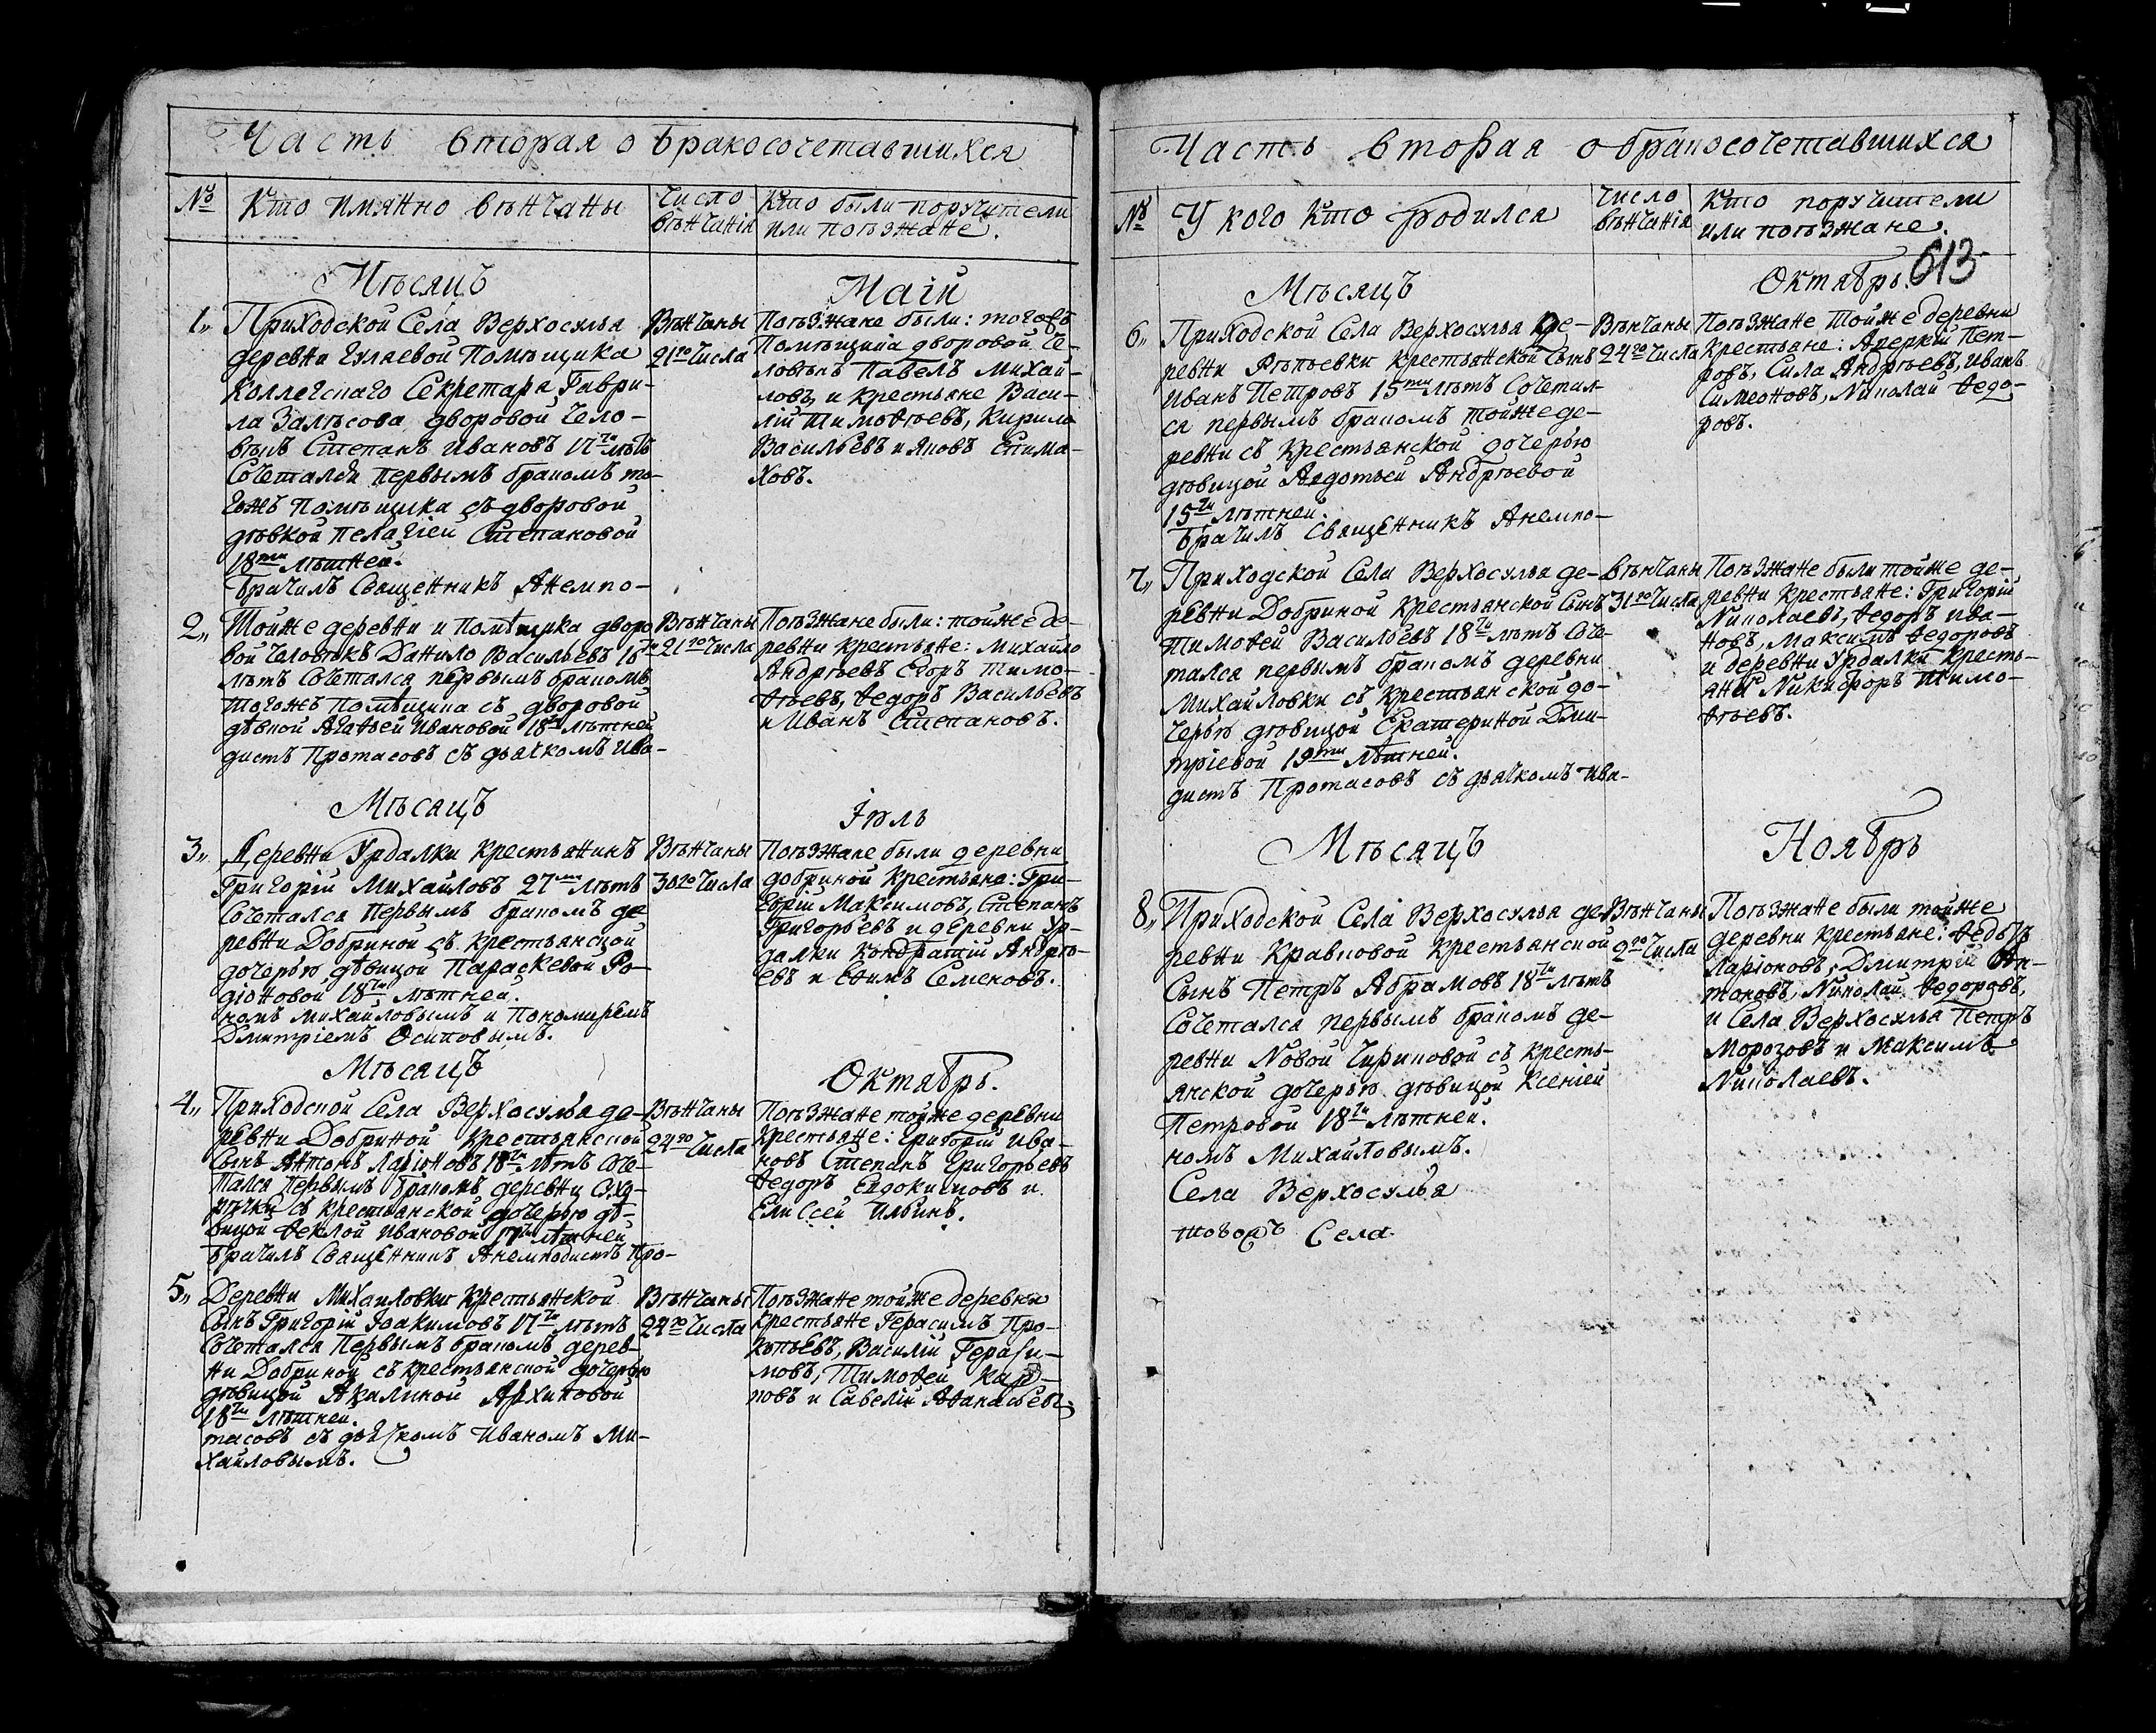 Часть вторая о бракосочетавшихся
№
Кто имянно вѣнчаны
Число
вѣнчанія
Кто были поручители
или поѣзжане.
Мѣсяцъ
Маій
1,,
Приходской Села Верхосулья
деревни Гуляевой Помѣщика
Коллегскаго Секретара Гаври-
ла Залѣсова дворовой чело-
вѣкъ Степанъ Ивановъ 17ти лѣтъ
Сочетался первымъ бракомъ то-
гожъ помѣщика съ дворовой
дѣвкой Пелагіей Степановой
18ти лѣтней.
Брачилъ Священникъ Анемпо-
Вѣнчаны
21го Числа
Поѣзжане были: тогожъ
Помѣщика дворовой че-
ловѣкъ Павелъ Михай-
ловъ, и крестьяне Васи-
лій Тимофѣевъ, Кирило
Васильевъ и Яковъ Стима-
ховъ.
2,,
Тойже деревни и помѣщика дворо
вой человѣкъ Данило Васильевъ 18ти
лѣтъ Сочетался первымъ бракомъ
тогожъ помѣщика съ дворовой
дѣвкой Агафьей Ивановой 18ти лѣтней
дистъ Протасовъ съ дьячкомъ Ива-
Вѣнчаны
21го Числа
Поѣзжане были: тойже де-
ревни крестьяне: Михайло
Андрѣевъ Егоръ Тимо-
ѳѣевъ, Ѳедоръ Васильевъ
и Иванъ Степановъ.
Мѣсяцъ
Іюль
3,,
Деревни Урдалки крестьянинъ
Григорій Михайловъ 27ми лѣтъ
Сочетался первымъ бракомъ де
ревни Добриной съ крестьянской
дочерью дѣвицой Параскевой Ро-
діоновой 18ти лѣтней.
номъ Михайловымъ и Пономиремъ
Дмитріемъ Осиповымъ.
Вѣнчаны
30го Числа
Поѣзжане были деревни
добриной крестьяне: Гри-
горій Максимовъ, Степанъ
Григорьевъ и деревни Ур-
далки Кондратій Андрѣ-
евъ и Ефимъ Семеновъ.
Мѣсяцъ
Октябрь.
4,,
Приходской Села Верхосулья де-
ревни Добриной крестьянской
Сынъ Антонъ Ларіоновъ 18ти лѣтъ Соче-
тался первымъ бракомъ деревни Сухо-
рѣчки съ крестьянской дочерью дѣ-
вицой Ѳеклой Ивановой 17ти лѣтней
Брачилъ Священникъ Анемподистъ Про-
Вѣнчаны
24го Числа
Поѣзжане тойже деревни
крестьяне: Григорій Ива-
новъ Степанъ Григорьевъ
Ѳедоръ Евдокимовъ и
Елисей Ильинъ.
5,,
Деревни Михаиловки крестьянской
Сынъ Григорій Іоакимовъ 17ти лѣтъ
Сочетался первымъ бракомъ дерев-
ни Добриной съ крестьянской дочерью
дѣвицой Акилиной Архиповой
18ти лѣтней.
тасовъ съ дьячкомъ Иваномъ Ми-
хайловымъ.
Вѣнчаны
24го Числа
Поѣзжане тойже деревни
крестьяне Герасимъ Про-
копьевъ, Василій Гераси-
мовъ, Тимоѳей Кар-
повъ и Савелій Аѳанасьевъ;
Часть вторая о бракосочетавшихся
№
У кого кто родился
Число
вѣнчанія
Кто поручители
или поѣзжане.
613
Мѣсяцъ
Октябрь.
6,,
Приходской Села Верхосулья де-
ревни Рѣпьевки крестьянской Сынъ
Иванъ Петровъ 15ти лѣтъ Сочетал-
ся первымъ бракомъ тойже де-
ревни съ крестьянской дочерью
дѣвицой Авдотьей Андрѣевой
15ти лѣтней.
Брачилъ Священникъ Анемпо-
Вѣнчаны
24го Числа
Поѣзжане Тойже деревни
крестьяне: Аверкій Пет-
ровъ, Сила Андрѣевъ, Иванъ
Симеоновъ, Николай Ѳедо-
ровъ.
7,,
Приходской Села Верхосулья де-
ревни Добриной крестьянской Сынъ
Тимоѳей Васильевъ 18ти лѣтъ Соче-
тался первымъ бракомъ деревни
Михайловки съ крестьянской до-
черью дѣвицой Екатериной Дми-
тріевой 19ти лѣтней.
дистъ Протасовъ съ дьячкомъ Ива-
вѣнчаны
31го Числа
Поѣзжане были тойже де-
ревни крестьяне: Григорій
Николаевъ, Ѳедоръ Ива-
новъ, Максимъ Ѳедоровъ
и деревни Урдалки кресть-
янъ Никифоръ Тимо-
ѳѣевъ.
Мѣсяцъ
Ноябрь
8,,
Приходской Села Верхосулья де
ревни Кравковой крестьянской
Сынъ Петръ Абрамовъ 18ти лѣтъ
Сочетался первымъ бракомъ де-
ревни Новой Чириковой съ кресть-
янской дочерью дѣвицой Ксеніей
Петровой 18ти лѣтней.
номъ Михайловымъ.
Села Верхосулья
тогожъ Села
Вѣнчаны
2го Числа
Поѣзжане были тойже
деревни крестьяне: Ѳедоръ
Ларіоновъ, Дмитрей Ан-
тоновъ, Николай Ѳедоровъ,
и Села Верхосулья Петръ
Морозовъ и Максимъ
Николаевъ.